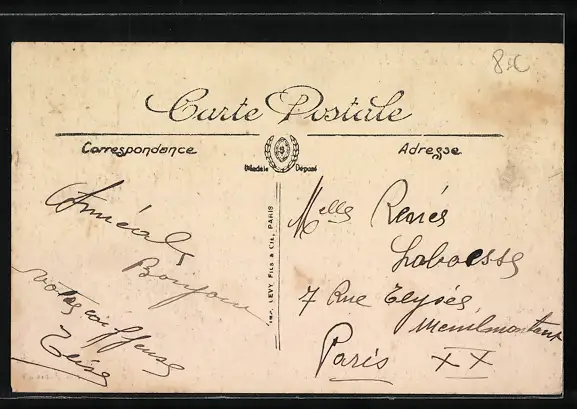 8.-€
Carte Postale
Correspondance
Adresse
Médaille Déposé
IMP. LEVY FILS & CIE, PARIS
Amical
Bonjour
votre coiffeuse
Elise
Melle Renée
Laboesse
7 Rue Elysée
Menilmontant
Paris XX